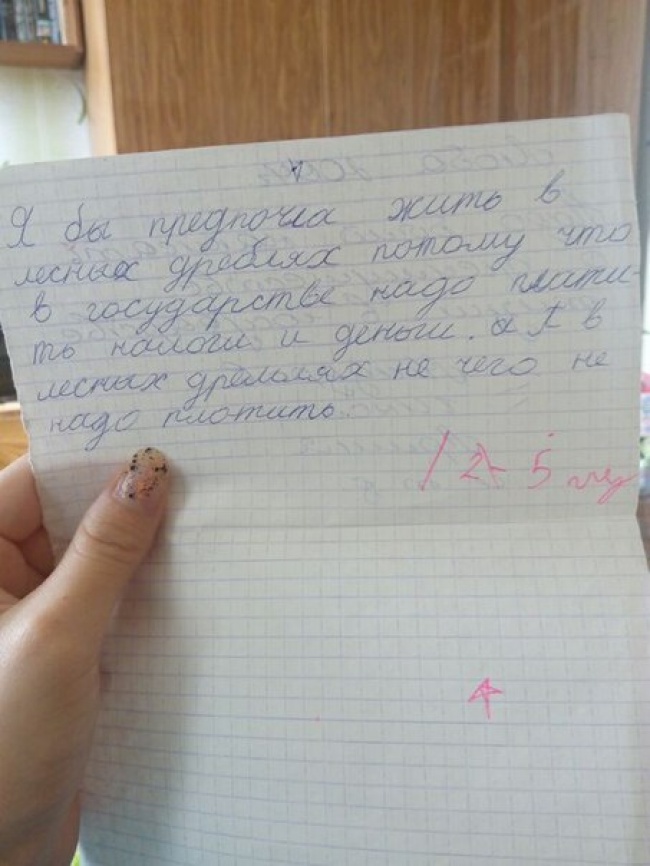 Я бы предпочла жить в
лесных дреблях потому что
в государстве надо плати-
ть налоги и деньги. а в
лесных дремлях не чего не
надо плотить.
/ 2 5